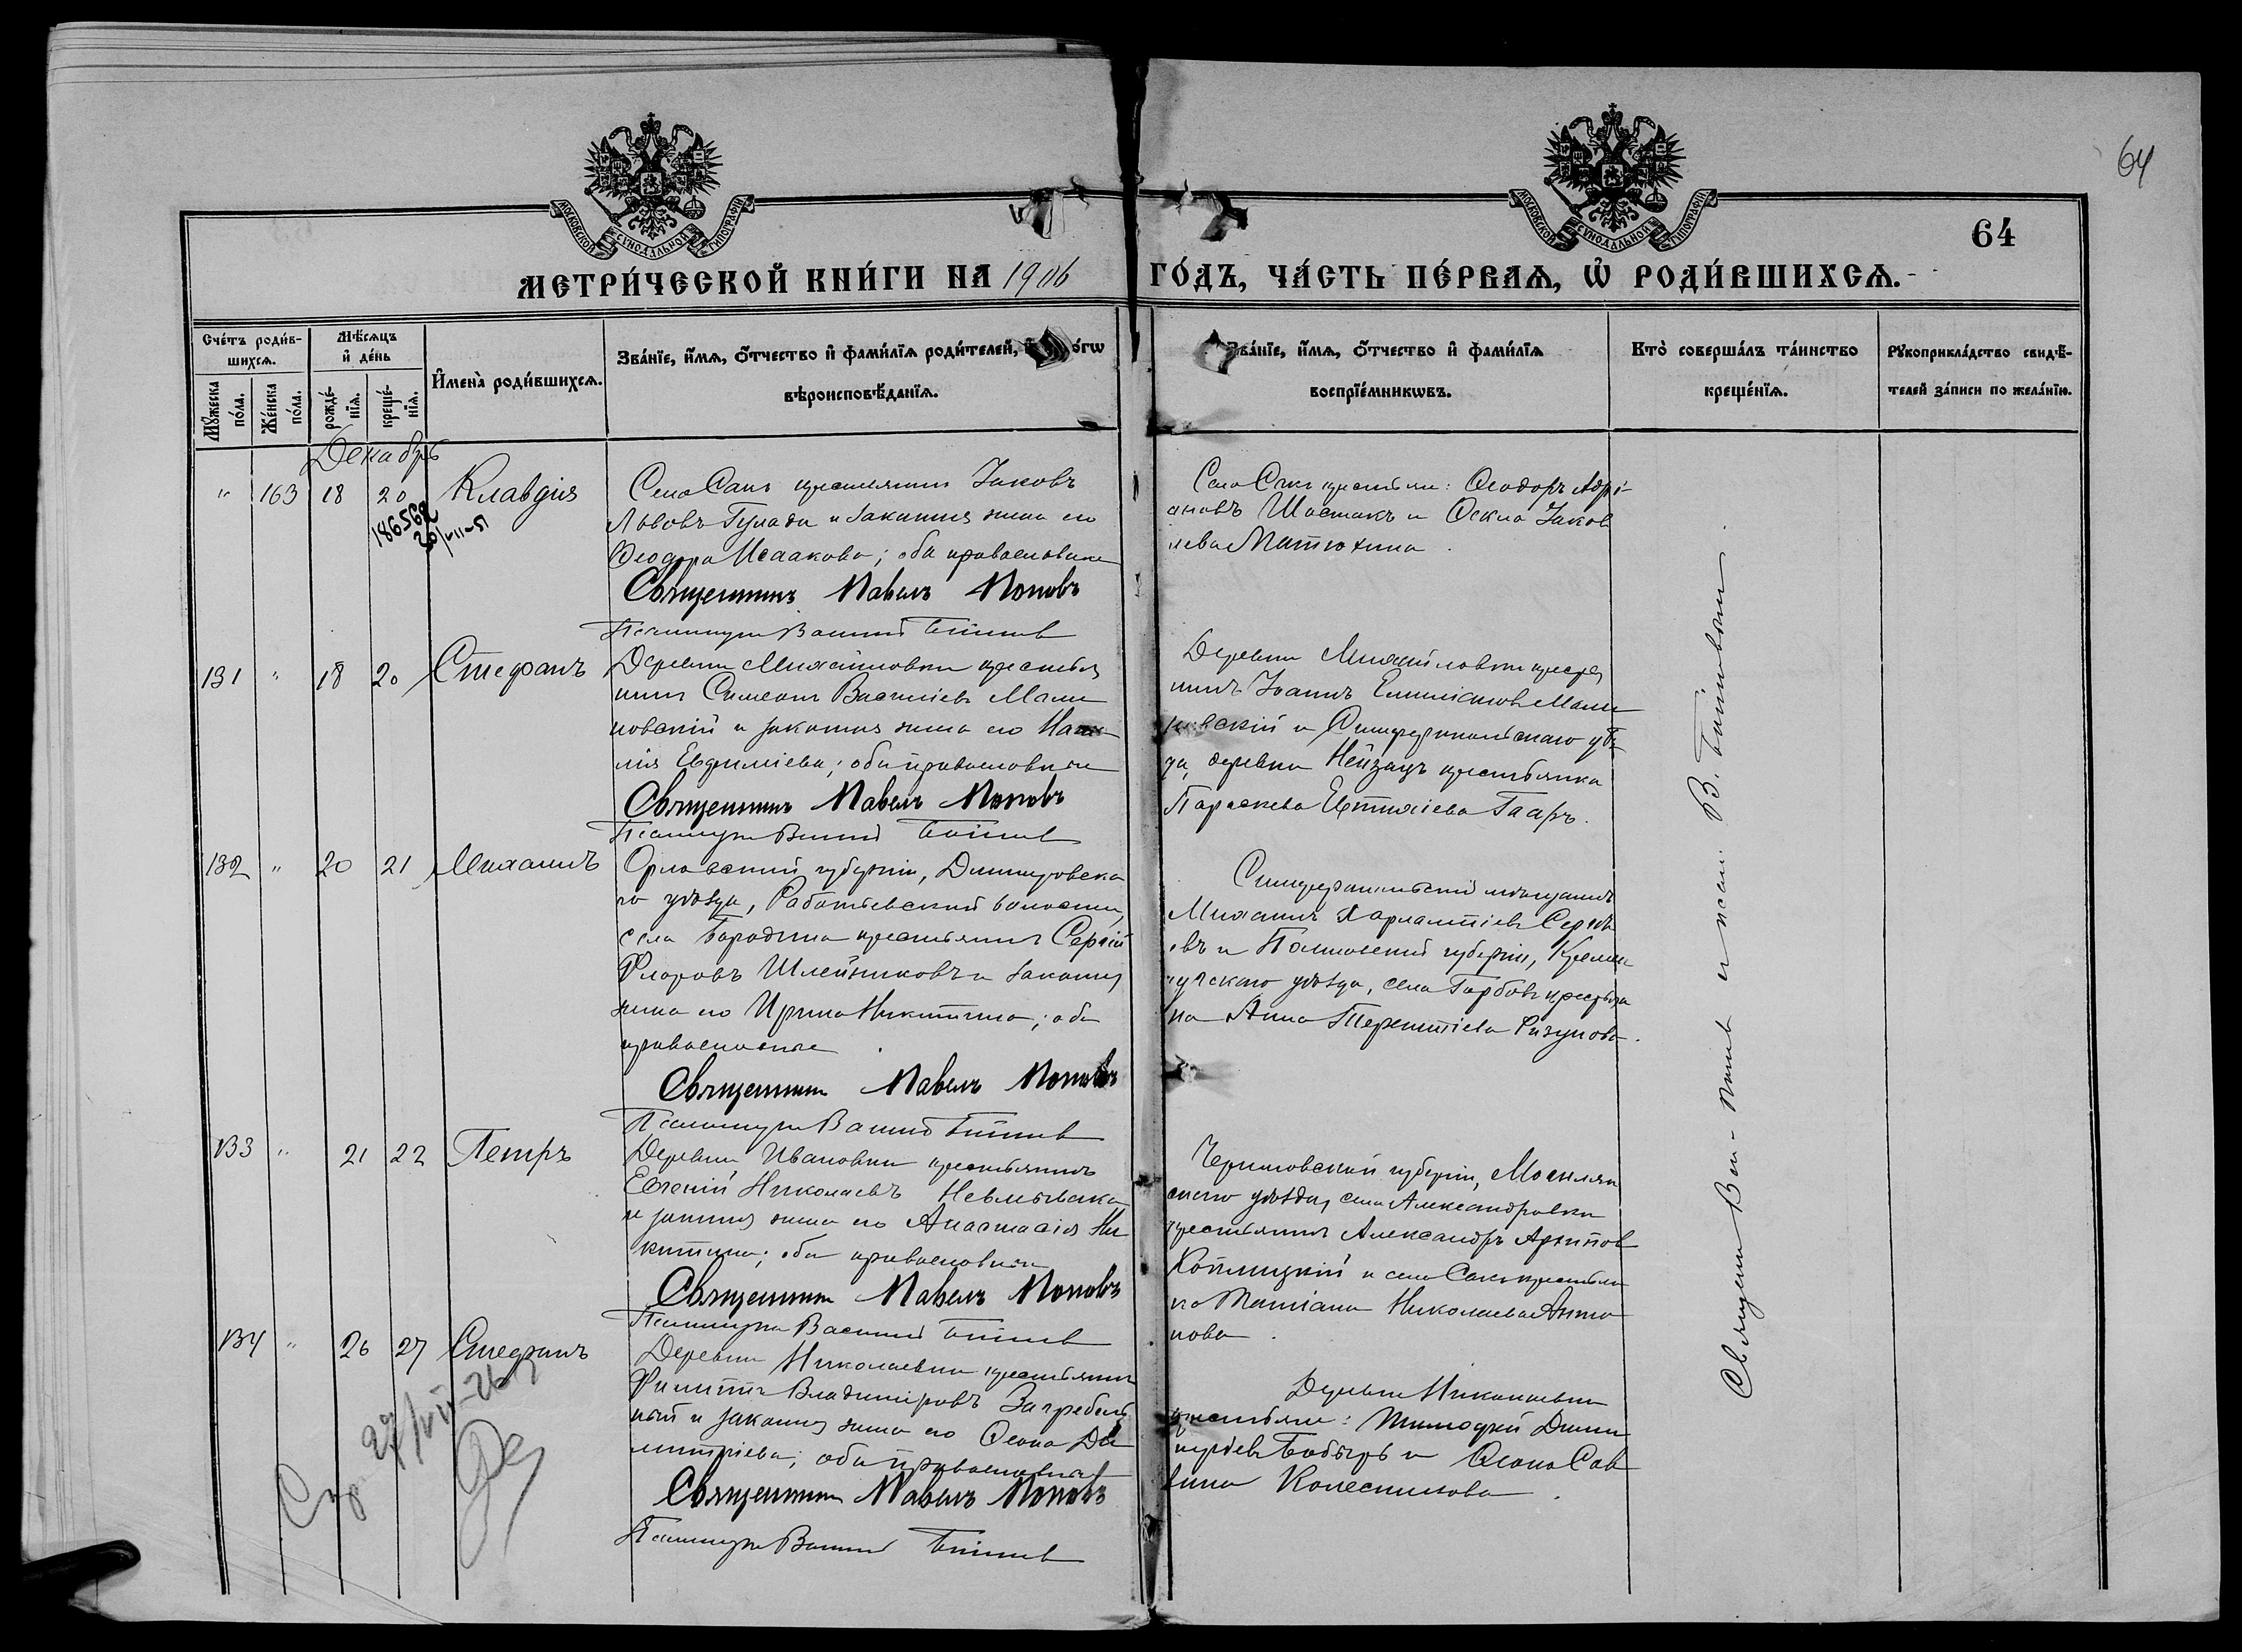 64
64
МОСКОВСКОЙ СѴНОДАЛЬНОЙ ТИПОГРАФІИ
МОСКОВСКОЙ СѴНОДАЛЬНОЙ ТИПОГРАФІИ
МЕТРИ́ЧЕСКОЙ КНИ́ГИ НА 1906 ГО́ДЪ, ЧА́СТЬ ПЕ́РВАЯ, Ѡ҆ РОДИ́ВШИХСЯ.
Сче́тъ роди́в-
шихся.
Мѣ́сяцъ
и҆ де́нь
Мꙋ́жеска
по́ла.
Же́нска
по́ла.
рожде́-
нїя.
креще́-
нїя.
И҆мена̀ роди́вшихся.
Зва́нїе, и҆́мя, ѻ҆́тчество и҆ фами́лїя роди́телей,
вѣроисповѣ́данїя.
Зва́нїе, и҆́мя, ѻ҆́тчество и҆ фами́лїя
воспрїе́мникѡвъ.
Кто̀ соверша́лъ та́инство
креще́нїя.
Рꙋкоприкла́дство свидѣ́-
телей за́писи по жела́нїю.
Декабрь
" 163 18 20 Клавдія
186562
20/VII-51
Село Саки крестьянинъ Іаковъ
Львовъ и законная жена его
Ѳеодора Исаакова; оба православные
Священникъ Павелъ Поповъ
Псаломщикъ Василій
Село Саки крестьяне: Ѳеодоръ Адрі-
ановъ Шостакъ и Іаков
лева Матюхина.
131 " 18 20 Стефанъ
Деревни Михайловки крестья
нинъ Симеонъ Василіевъ Мали
новскій и законная жена его Ната
лія Евфиміева; оба православные
Священникъ Павелъ Поповъ
Псаломщикъ Василій
Деревни Михайловки крестья
нинъ Іоаннъ Емиліановъ Мали
новскій и Симферопольскаго уѣз
да, деревни Нейзацъ крестьянка
Параскева Евтихіева Гааръ.
132 " 20 21 Михаилъ
Орловской губерніи, Димитровска
го уѣзда, волости,
села Бородина крестьянинъ Сергій
Флоровъ Шлейниковъ и законная
жена его Ирина Никитина; оба
православные.
Священникъ Павелъ Поповъ
Псаломщикъ Василій
Симферопольскій мѣщанинъ
Михаилъ Харлампіевъ
и Полтавской губерніи, Кремен
чугскаго уѣзда, села крестьян
ка Анна Терентіева
133 " 21 22 Петръ
Деревни Ивановки крестьянинъ
Евгеній Николаевъ
и законная жена его Анастасія Ни
китина; оба православные
Священникъ Павелъ Поповъ
Псаломщикъ Василій
Черниговской губерніи,
скаго уѣзда, села Александровки
крестьянинъ Александръ Архипов
и села Саки крестьян
ка Татіана Николаева Анто
нова.
134 " 26 27 Стефанъ
27/VII-26
Деревни Николаевки крестьянинъ
Филиппъ Владиміровъ Загребель
ный и законная жена его Ѳеона Ди
митріева; оба православные
Священникъ Павелъ Поповъ
Псаломщикъ Василій
Деревни Николаевки
крестьяне: Тимофей Дими
тріевъ Бобырь и Ѳеона Сав
вина Колесникова.